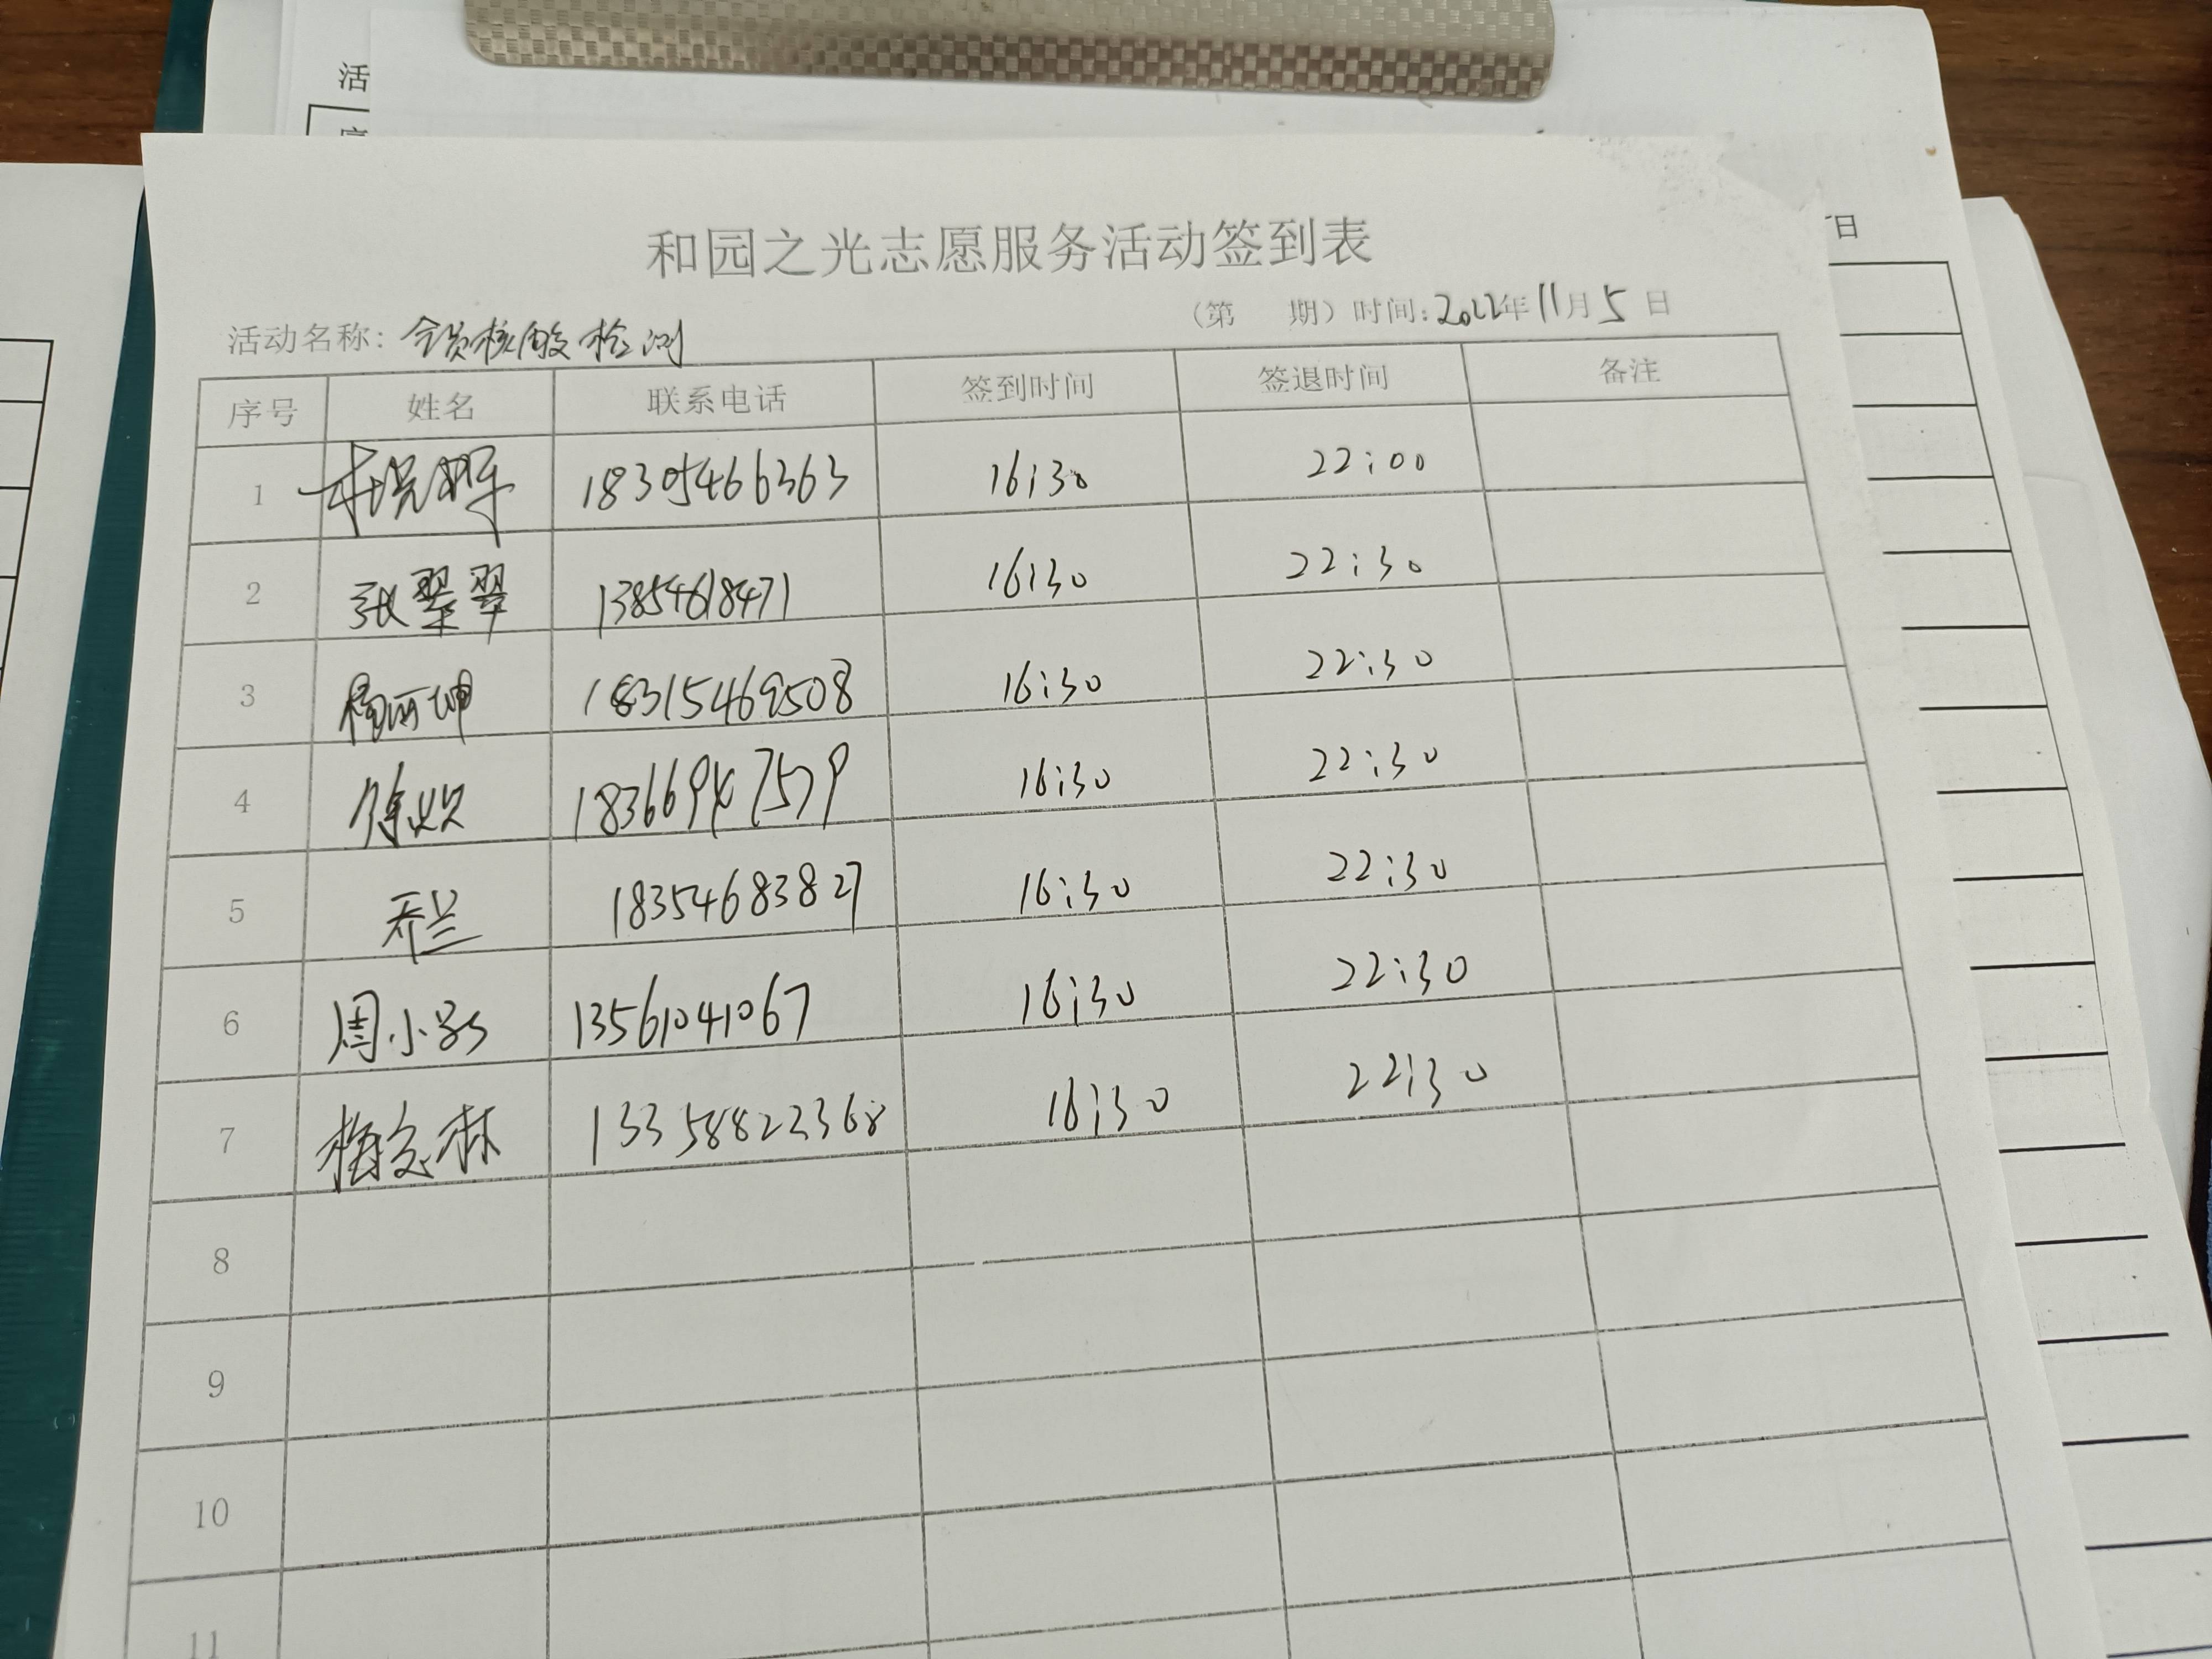 活
和园之光志愿服务活动签到表
日
(第 期) 时间:2022年11月5日
活动名称: 全员核酸检测
序号 姓名 联系电话 签到时间 签退时间 备注
1 18305466363 16:30 22:00
2 张翠翠 13854618471 16:30 22:30
3 18315469508 16:30 22:30
4 徐 18366947579 16:30 22:30
5 乔兰 18354683827 16:30 22:30
6 周小 13561041067 16:30 22:30
7 梅 林 13358822368 16:30 22:30
8
9
10
11